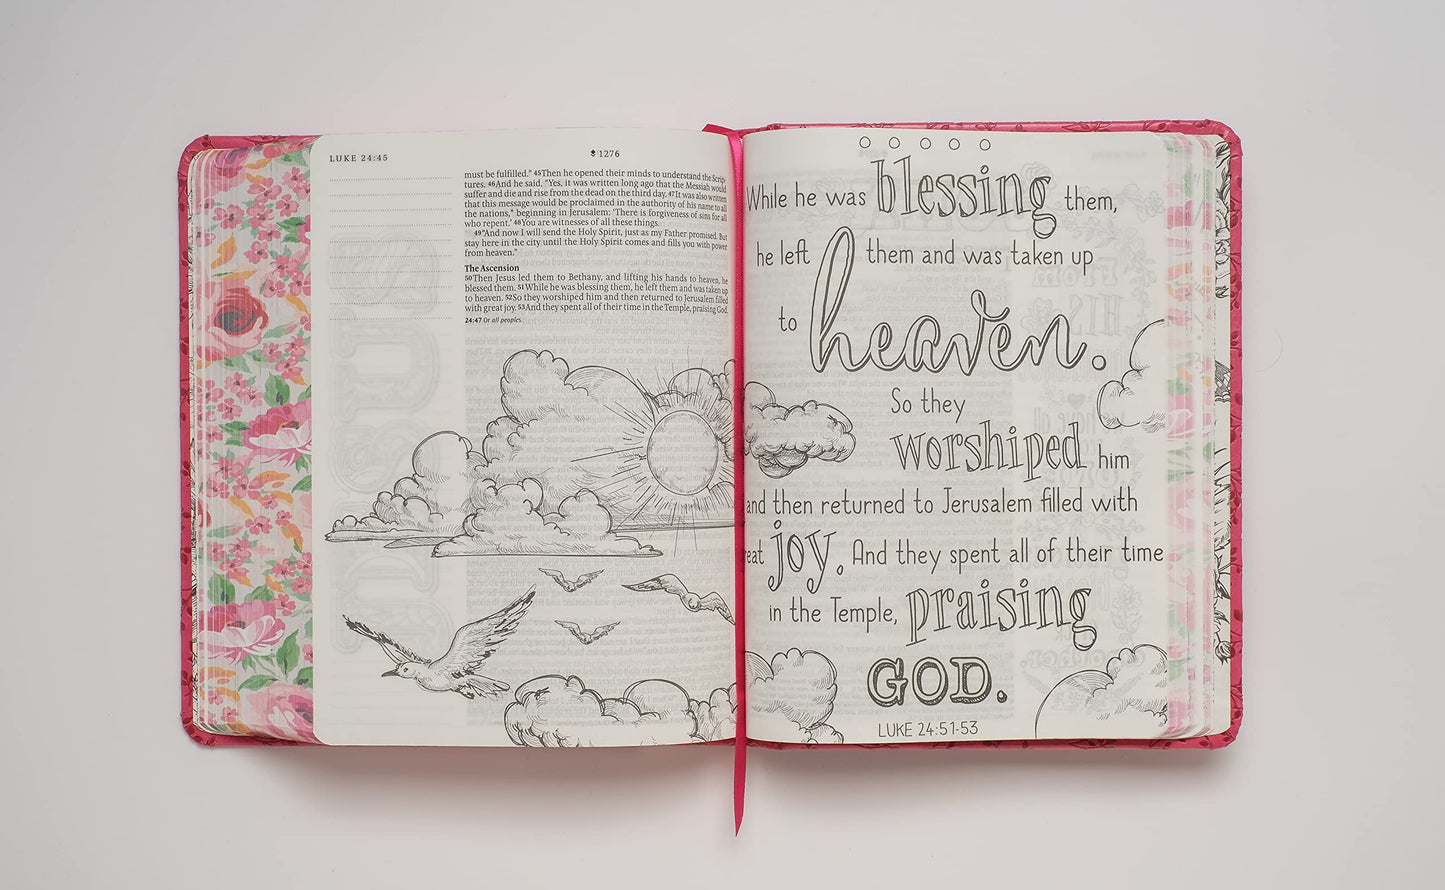 LUKE 24:45
1276
must be fulfilled.” 45Then he opened their minds to understand the Scrip-
tures. 46And he said, “Yes, it was written long ago that the Messiah would
suffer and die and rise from the dead on the third day. 47It was also written
that this message would be proclaimed in the authority of his name to all
the nations,* beginning in Jerusalem: ‘There is forgiveness of sins for all
who repent.’ 48You are witnesses of all these things.
49“And now I will send the Holy Spirit, just as my Father promised. But
stay here in the city until the Holy Spirit comes and fills you with power
from heaven.”
The Ascension
50Then Jesus led them to Bethany, and lifting his hands to heaven, he
blessed them. 51While he was blessing them, he left them and was taken up
to heaven. 52So they worshiped him and then returned to Jerusalem filled
with great joy. 53And they spent all of their time in the Temple, praising God.
24:47 Or all peoples.
While he was blessing them,
he left them and was taken up
to heaven.
So they
worshiped him
and then returned to Jerusalem filled with
reat joy. And they spent all of their time
in the Temple, praising
GOD.
LUKE 24:51-53